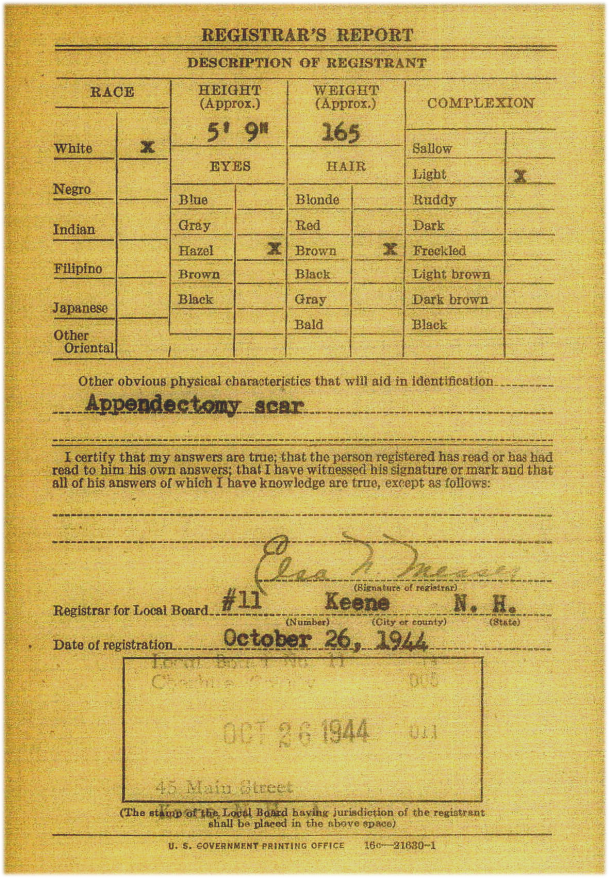 REGISTRAR'S REPORT
DESCRIPTION OF REGISTRANT
RACE
HEIGHT
(Approx.)
WEIGHT
(Approx.)
COMPLEXION
5' 9"
165
White X
EYES
HAIR
Sallow
Light X
Negro
Blue
Blonde
Ruddy
Indian
Gray
Red
Dark
Hazel X
Brown X
Freckled
Filipino
Brown
Black
Light brown
Japanese
Black
Gray
Dark brown
Other
Oriental
Bald
Black
Other obvious physical characteristics that will aid in identification
Appendectomy scar
I certify that my answers are true; that the person registered has read or has had
read to him his own answers; that I have witnessed his signature or mark and that
all of his answers of which I have knowledge are true, except as follows:
Elsa N. Messer
(Signature of registrar)
Registrar for Local Board #11 Keene N. H.
(Number) (City or county) (State)
Date of registration October 26, 1944
Local Board No. 11
Cheshire County 005
OCT 26 1944 011
45 Main Street
Keene, N. H.
(The stamp of the Local Board having jurisdiction of the registrant
shall be placed in the above space)
U. S. GOVERNMENT PRINTING OFFICE 16c—21630-1